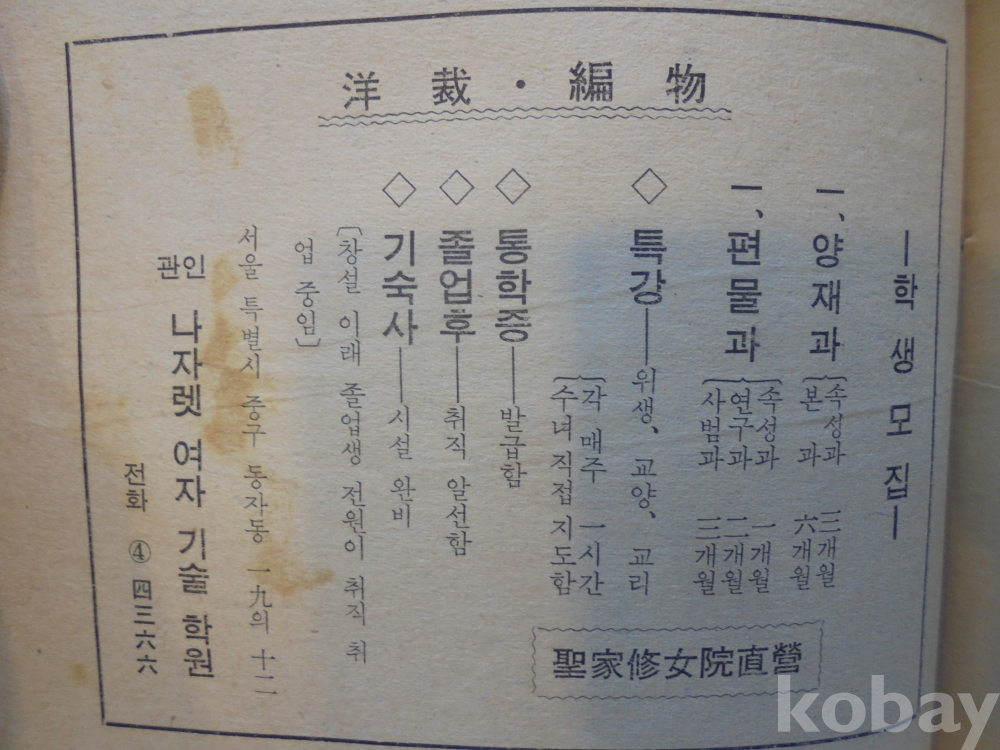 洋裁・編物
―학생모집―
一、양재과{속성과 三개월
본과 六개월
一、편물과{속성과 一개월
연구과 二개월
사범과 三개월
◇특강―위생、교양、교리
{각 매주 一시간
수녀 직접 지도함
◇통학증―발급함
◇졸업후―취직 알선함
◇기숙사―시설 완비
〔창설 이래 졸업생 전원이 취직 취
업 중임〕
聖家修女院直營
서울 특별시 중구 동자동 一九의 十二
관인 나자렛 여자 기술 학원
전화 ④ 四三六六
kobay